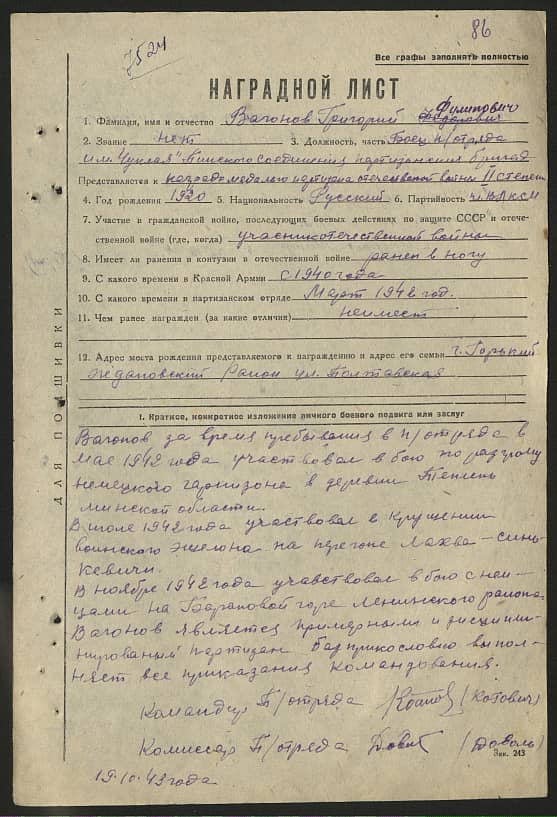 7524
86
Все графы заполнять полностью
НАГРАДНОЙ ЛИСТ
Филипович
1. Фамилия, имя и отчество Вагонов Григорий
2. Звание нет 3. Должность, часть Боец п/отряда
им. Чуклая" Пинского соединения партизанских бригад
Представляется к награде медалью партизана отечественной войны II степени
4. Год рождения 1920 5. Национальность Русский 6. Партийность чл. ВЛКСМ
7. Участие в гражданской войне, последующих боевых действиях по защите СССР и отече-
ственной войне (где, когда) участник отечественной войны
8. Имеет ли ранения и контузии в отечественной войне ранен в ногу
9. С какого времени в Красной Армии с 1940 года
10. С какого времени в партизанском отряде Март 1942 год.
11. Чем ранее награжден (за какие отличия) неимеет
12. Адрес места рождения представляемого к награждению и адрес его семьи г. Горький
Ждановский Район ул. Полтавская
ДЛЯ ПОДШИВКИ
I. Краткое, конкретное изложение личного боевого подвига или заслуг
Вагонов за время пребывания в п/отряда в
мае 1942 года участвовал в бою по разгрому
немецкого гарнизона в деревни
минской области.
В июле 1942 года участвовал в крушении
воинского эшелона на перегоне Лахва-синь-
кевичи.
В ноябре 1942 года учавствовал в бою с нем-
цами на Барановой горе Ленинского района.
Вагонов является примерным и дисципли-
нированый партизан бесприкословно выпол-
няет все приказания командования.
Командир П/отряда (Котович)
Комиссар П/отряда (Доволь)
Зак. 243
19.10.43 года